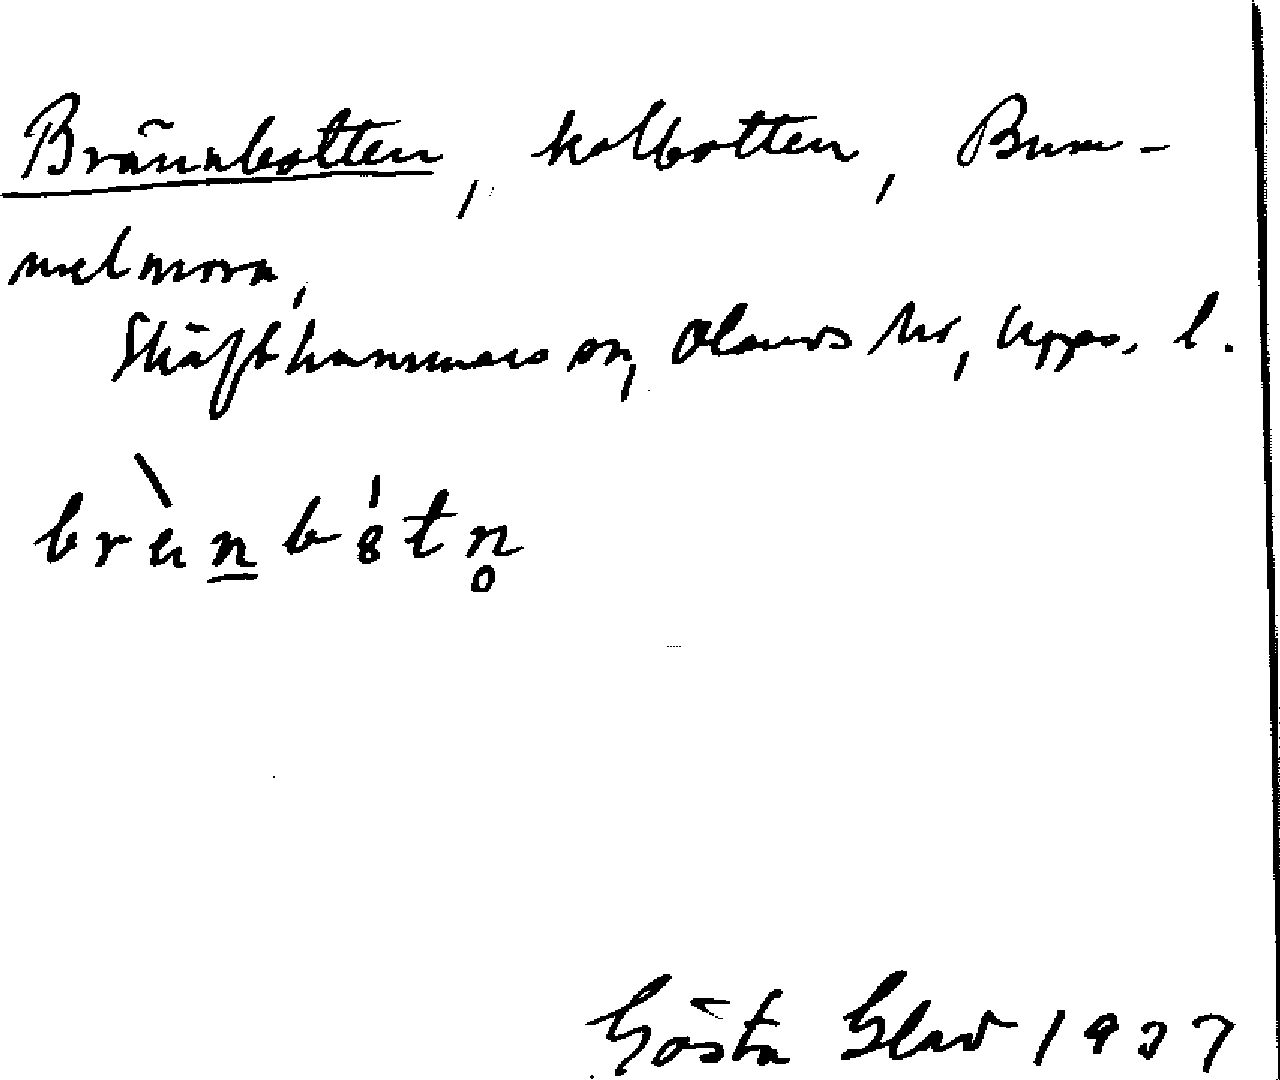 Brännbotten, kolbotten, Bum-
melmora,
Skäfthammars sn, Olands hd, Upps. l.
brän̲bòtn̥
Gösta Glad 1937